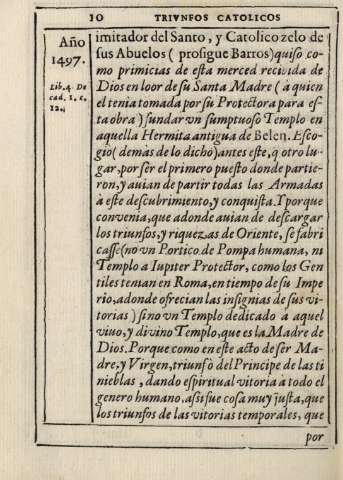 10 TRIVNFOS CATOLICOS
Año
1497.
Lib. 4. De
cad. 1. c.
12.
imitador del Santo, y Catolico zelo de
sus Abuelos (prosigue Barros) quiso co-
mo primicias de esta merced recivida de
Dios en loor de su Santa Madre (a quien
el tenia tomada por su Protectora para es-
ta obra) fundar vn sumptuoso Templo en
aquella Hermita antigua de Belen. Esco-
gio (demàs de lo dicho) antes este, q otro lu-
gar, por ser el primero puesto donde partie-
ron, y auian de partir todas las Armadas
à este descubrimiento, y conquista. Y porque
convenia, que adonde auian de descargar
los triunfos, y riquezas de Oriente, se fabri
casse (no vn Portico de Pompa humana, ni
Templo a Iupiter Protector, como los Gen
tiles tenian en Roma, en tiempo de su Impe
rio, adonde ofrecian las insignias de sus vi-
torias) sino vn Templo dedicado à aquel
viuo, y divino Templo, que es la Madre de
Dios. Porque como en este acto de ser Ma-
dre, y Virgen, triunfò del Principe de las ti
nieblas, dando espiritual vitoria à todo el
genero humano, assi fue cosa muy justa, que
los triunfos de las vitorias temporales, que
por